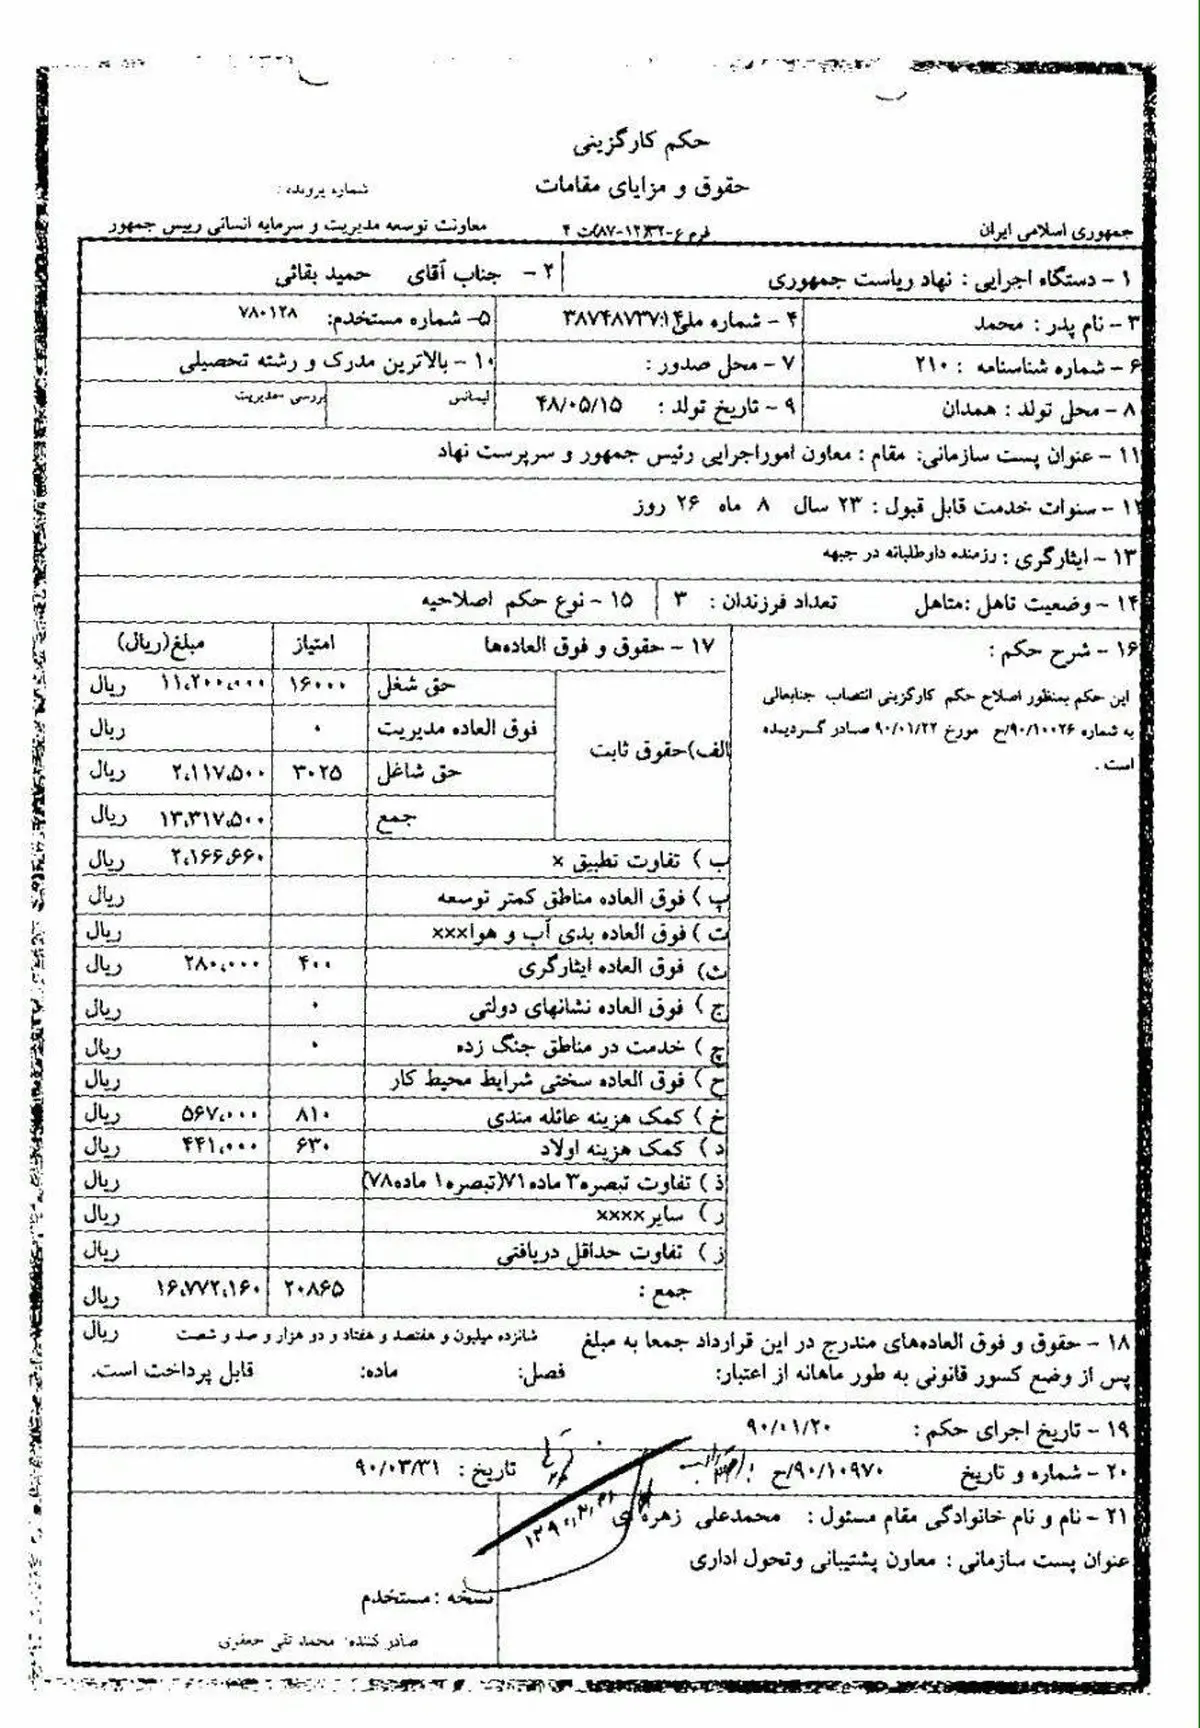 حکم کارگزینی
حقوق و مزایای مقامات
شماره پرونده :
جمهوری اسلامی ایران
فرم ۶-۳۲(۱۲-۸۷)ت ۴
معاونت توسعه مدیریت و سرمایه انسانی رییس جمهور
۱ - دستگاه اجرایی : نهاد ریاست جمهوری
۲ - جناب آقای حمید بقائی
۳ - نام پدر : محمد
۴ - شماره ملی:
۵- شماره مستخدم: ۷۸۰۱۲۸
۶ - شماره شناسنامه : ۲۱۰
۷ - محل صدور :
۱۰ - بالاترین مدرک و رشته تحصیلی
۸ - محل تولد : همدان
۹ - تاریخ تولد : ۴۸/۰۵/۱۵
لیسانس
بررسی -مدیریت
۱۱ - عنوان پست سازمانی: مقام : معاون اموراجرایی رئیس جمهور و سرپرست نهاد
۱۲ - سنوات خدمت قابل قبول : ۲۳ سال ۸ ماه ۲۶ روز
۱۳ - ایثارگری : رزمنده داوطلبانه در جبهه
۱۴ - وضعیت تاهل :متاهل تعداد فرزندان : ۳
۱۵ - نوع حکم اصلاحیه
۱۶ - شرح حکم :
این حکم بمنظور اصلاح حکم کارگزینی انتصاب جنابعالی
به شماره ۹۰/۱۰۰۲۶/ح مورخ ۹۰/۰۱/۲۲ صادر گردیده
است .
۱۷ - حقوق و فوق العاده‌ها امتیاز مبلغ(ریال)
الف)حقوق ثابت
حق شغل ۱۶۰۰۰ ۱۱،۲۰۰،۰۰۰ ریال
فوق العاده مدیریت ۰ ریال
حق شاغل ۳۰۲۵ ۲،۱۱۷،۵۰۰ ریال
جمع ۱۳،۳۱۷،۵۰۰ ریال
ب ) تفاوت تطبیق × ۲،۱۶۶،۶۶۰ ریال
پ ) فوق العاده مناطق کمتر توسعه ریال
ت ) فوق العاده بدی آب و هوا××× ریال
ث) فوق العاده ایثارگری ۴۰۰ ۲۸۰،۰۰۰ ریال
ج ) فوق العاده نشانهای دولتی ۰ ریال
چ ) خدمت در مناطق جنگ زده ۰ ریال
ح ) فوق العاده سختی شرایط محیط کار ریال
خ ) کمک هزینه عائله مندی ۸۱۰ ۵۶۷،۰۰۰ ریال
د ) کمک هزینه اولاد ۶۳۰ ۴۴۱،۰۰۰ ریال
ذ ) تفاوت تبصره۳ ماده۷۱(تبصره۱ ماده۷۸) ریال
ر ) سایر×××× ریال
ز ) تفاوت حداقل دریافتی ریال
جمع : ۲۰۸۶۵ ۱۶،۷۷۲،۱۶۰ ریال
۱۸ - حقوق و فوق العاده‌های مندرج در این قرارداد جمعا به مبلغ شانزده میلیون و هفتصد و هفتاد و دو هزار و صد و شصت ریال
پس از وضع کسور قانونی به طور ماهانه از اعتبار: فصل: ماده: قابل پرداخت است.
۱۹ - تاریخ اجرای حکم : ۹۰/۰۱/۲۰
۲۰ - شماره و تاریخ ۹۰/۱۰۹۷۰/ح تاریخ : ۹۰/۰۳/۳۱
۲۱ - نام و نام خانوادگی مقام مسئول : محمدعلی زهره ای
عنوان پست سازمانی : معاون پشتیبانی وتحول اداری
نسخه : مستخدم
صادر کننده: محمد تقی جعفری